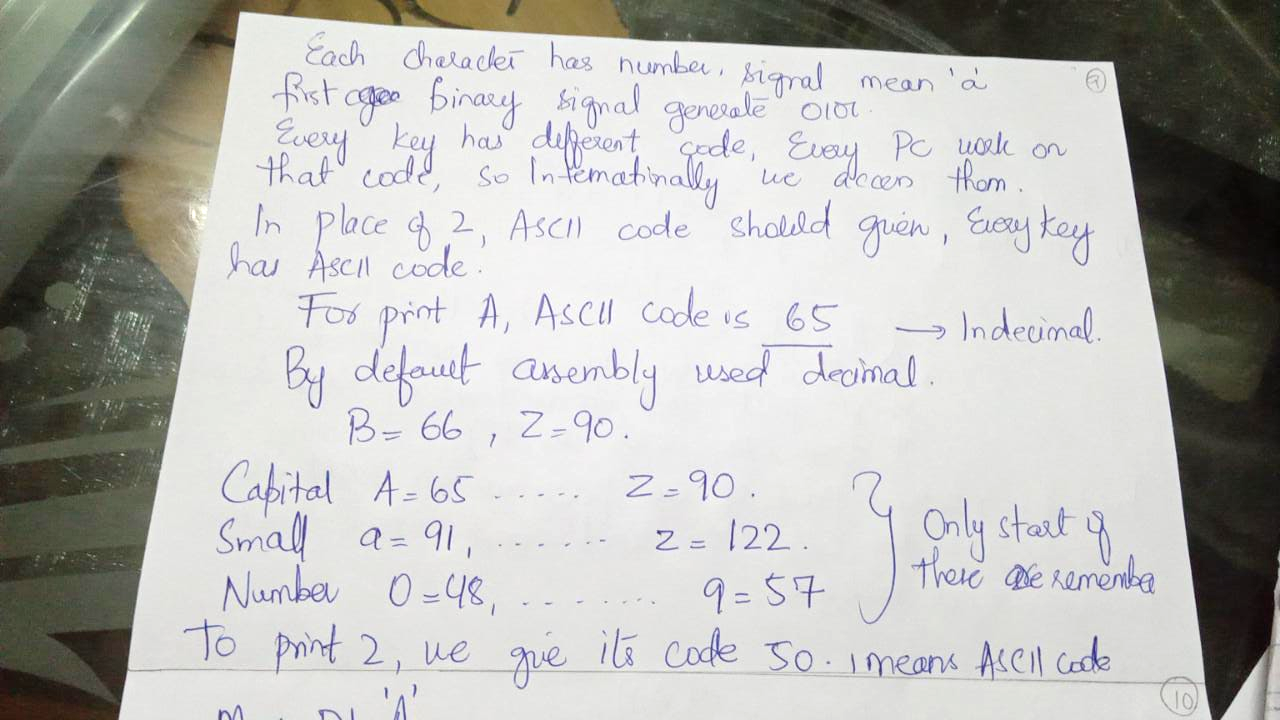 9
Each character has number, signal mean 'a'
first binary signal generate 0101.
Every key has different code, Every PC work on
that code, so Internatinally we access them.
In place of 2, ASCII code should given, Every key
has ASCII code.
For print A, ASCII code is 65 → In decimal.
By default assembly used decimal.
B = 66 , Z = 90.
Capital A = 65 ..... Z = 90.
Small a = 91, ....... z = 122.
Number 0 = 48, ........ 9 = 57
} Only start of
there are remember
To print 2, we give its code 50. , means ASCII code
10
'A'